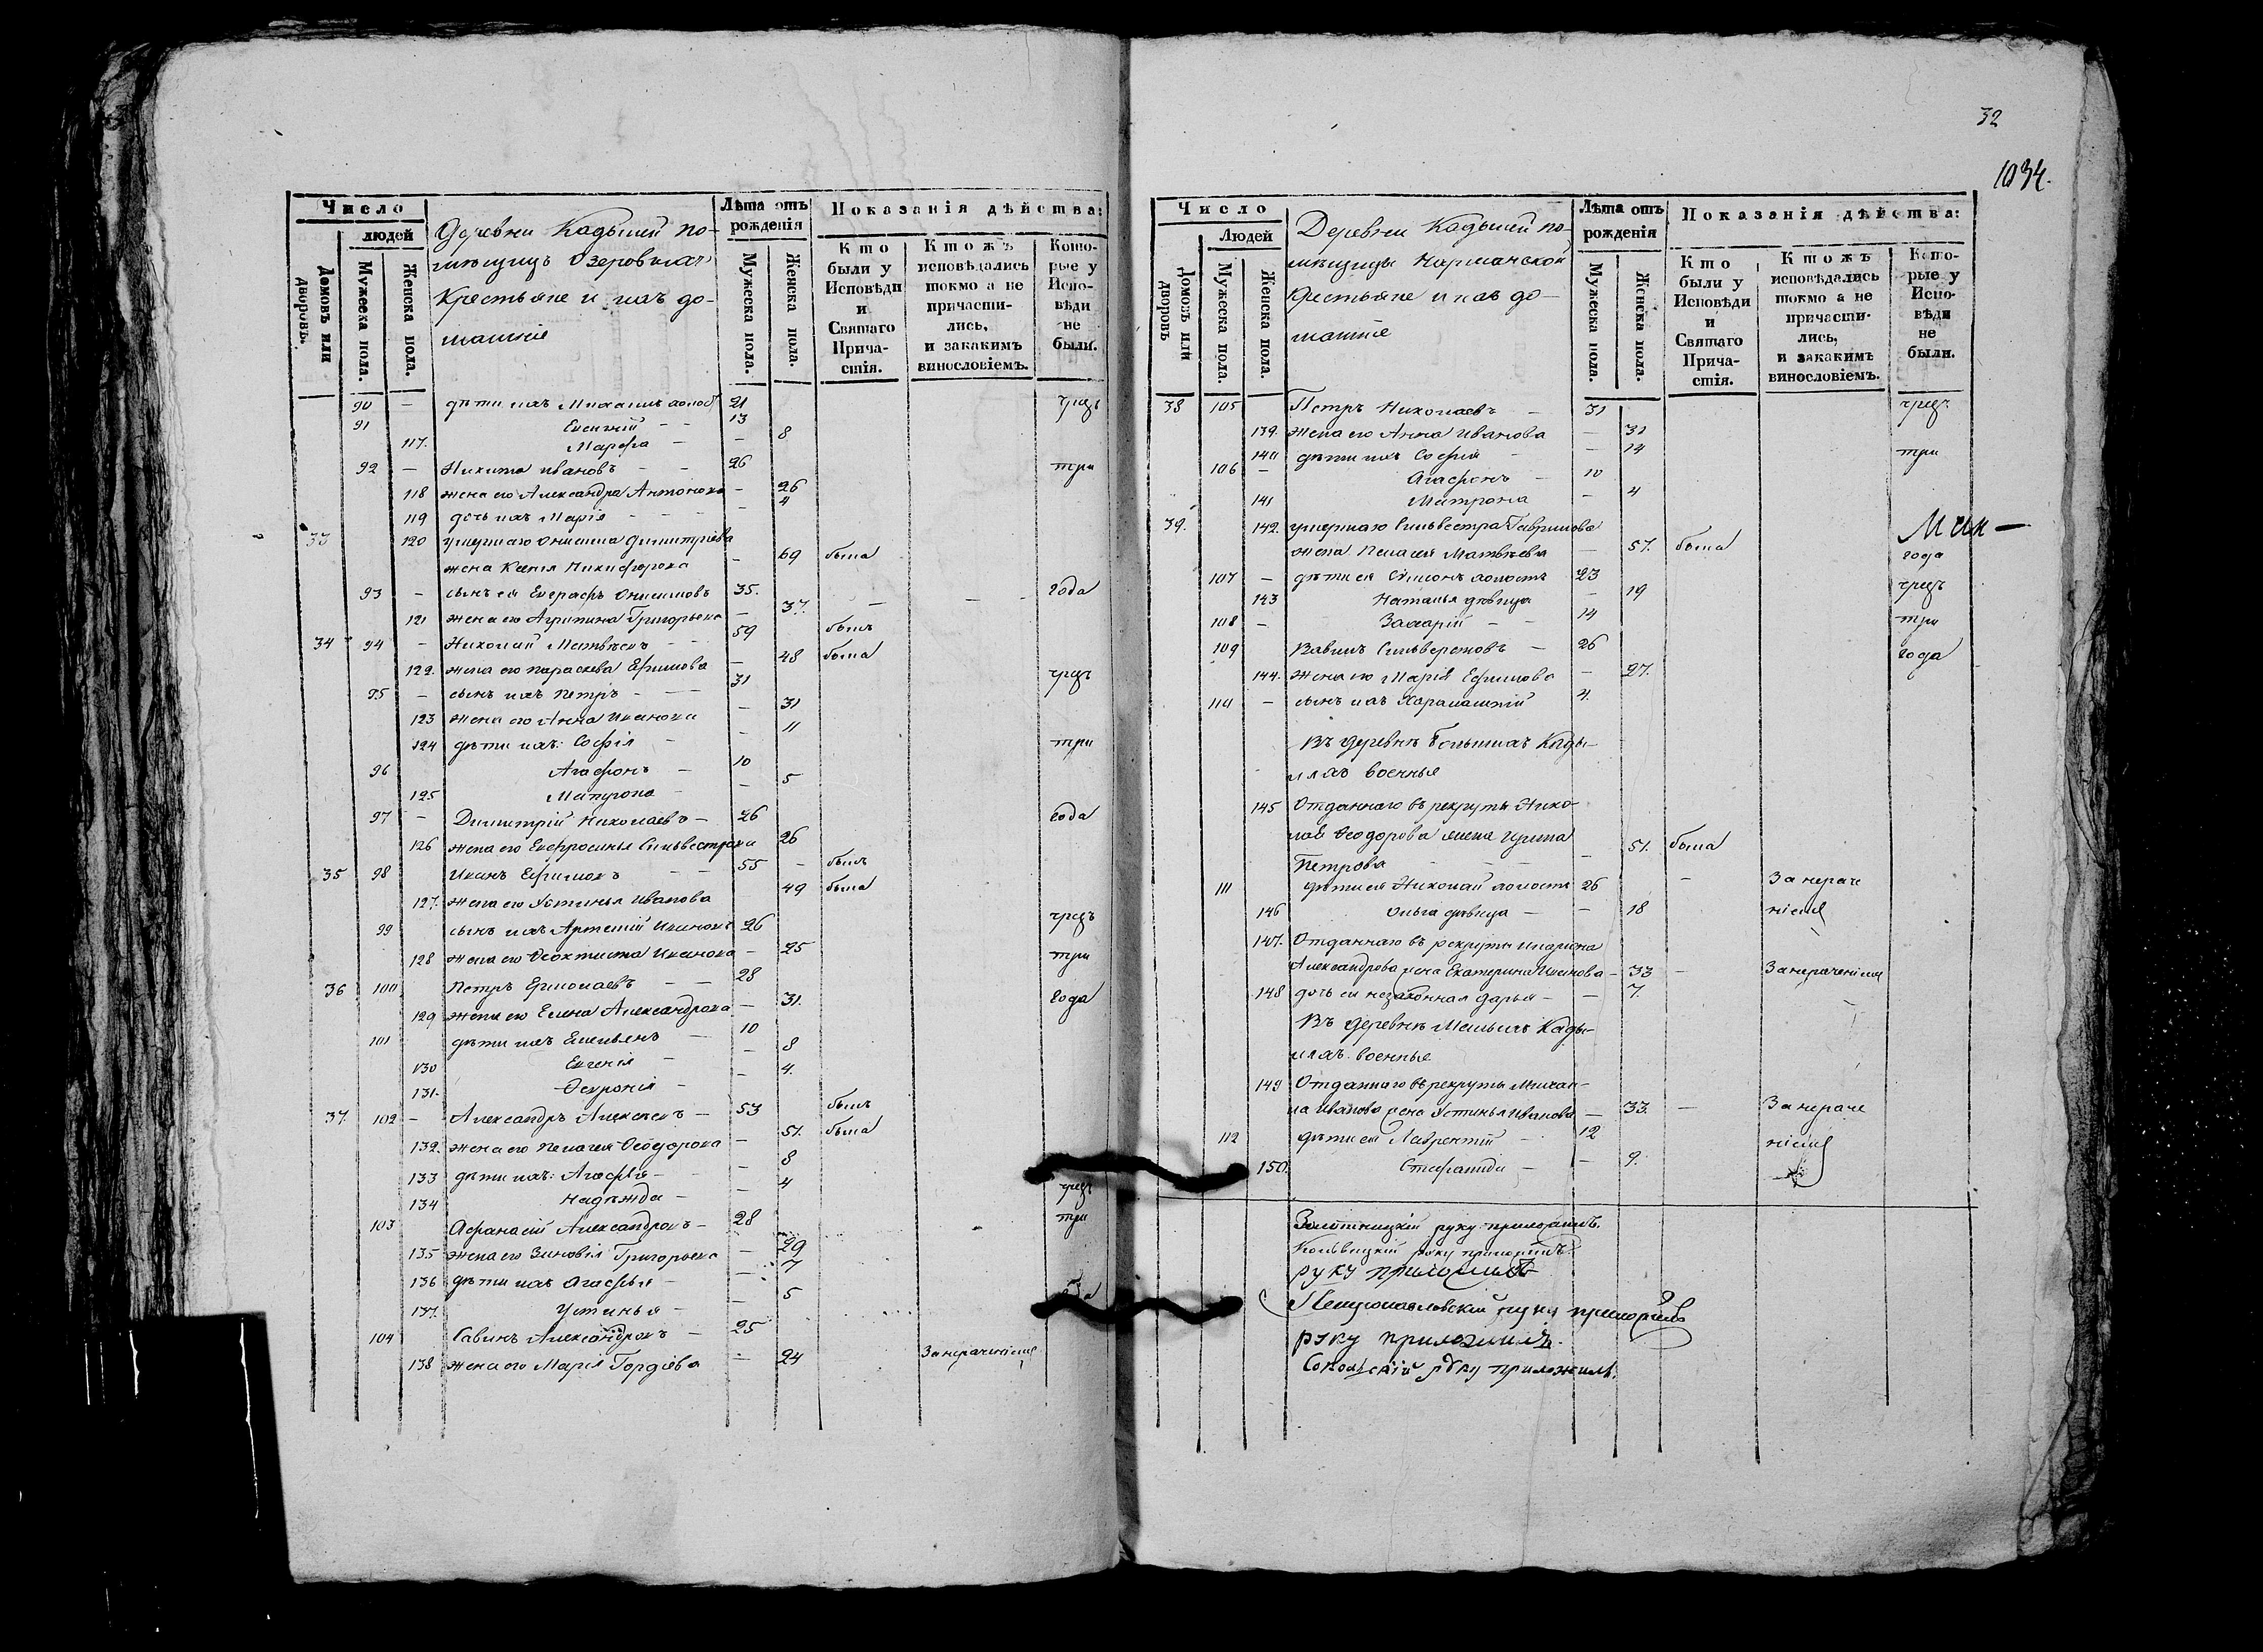 Число
людей
Домовъ или дворовъ.
Мужеска пола.
Женска пола.
Деревни Кадышей по-
мѣщицъ Озеровыхъ
Крестьяне и ихъ до-
машніе
Лѣта отъ рожденія
Мужеска пола.
Женска пола.
Показанія дѣйства:
Кто были у Исповѣди и Святаго Причастія.
Ктожъ исповѣдались токмо а не причастились, и закакимъ винословіемъ.
Которые у Исповѣди не были.
90 — дѣти ихъ Михаилъ холост 21 чрезъ
91 Евгеній — — 13
117. Марфа — — 8
92 — Никита Ивановъ — — 26 три
118 жена его Александра Антонова — 26
119 дочь ихъ Марія — — — — 4
33 120 умершаго Онисима Димитріева
жена Ксенія Никифорова — 69 была
93 — сынъ ея Евграфъ Онисимовъ 35. года
121 жена его Агрипина Григорьева — 37.
34 94 — Николай Матвѣевъ — 59 былъ
122. жена его Параскева Ефимова — 48 была
95 — сынъ ихъ Петръ — — — 31 чрезъ
123 жена его Анна Иванова — 31
124 дѣти ихъ: Софія — — 11 три
96 Агафонъ — 10
125 Матрона — — 5
97 — Димитрій Николаевъ — 26 года
126 жена его Евфросинья Сильвестрова 26
35 98 Иванъ Ефимовъ — — 55 — былъ
127. жена его Устинья Иванова 49 была
99 сынъ ихъ Артемій Ивановъ 26 чрезъ
128 жена его Ѳеоктиста Иванова — 25 три
36 100 Петръ Ермолаевъ — — 28
129 жена его Елена Александрова — 31. года
101 дѣти ихъ Емельянъ — 10
130 Евгенія — — 8
131. Февронія — — 4.
37. 102 — Александръ Алексѣевъ — 53 былъ
132. жена его Пелагея Ѳеодорова — 51. была
133 дѣти ихъ: Агафья — — 8
134 Надежда — — 4 чрезъ
103 Афанасій Александровъ — 28 три
135 жена его Зиновія Григорьева — 29
136 дѣти ихъ Агафья — — 7
137. Устинья — — 5 года
104 Савинъ Александровъ — 25
138 жена его Марія Гордіева — 24 Занераченіемъ
32
1034.
Число
Людей
Домовъ или дворовъ
Мужеска пола.
Женска пола.
Деревни Кадышей по-
мѣщицы Норманской
Крестьяне и ихъ до-
машніе
Лѣта отъ рожденія
Мужеска пола.
Женска пола.
Показанія дѣйства:
Кто были у Исповѣди и Святаго Причастія.
Ктожъ исповѣдались токмо а не причастились, и закакимъ винословіемъ.
Которые у Исповѣди не были.
38 105 Петръ Николаевъ — 31 чрезъ
139. жена его Анна Иванова — 31
140 дѣти ихъ Софія — — 14 три
106 — Агафонъ — 10
141 Матрона — 4
39. 142. умершаго Сильвестра Гаврилова
жена Пелагея Матвѣева — 57. была года
107 — дѣти ея Симеонъ холостъ 23 чрезъ
143 Наталья дѣвица — 19
108 — Захарій — — 14 три
109 Вавилъ Сильверстовъ — 26 года
144. жена его Марія Ефимова — 27.
110 — сынъ ихъ Харалампій 4.
Въ деревнѣ Большихъ Кады-
шахъ военные
145 Отданнаго въ рекруты Нико-
лая Ѳеодорова жена Ирина
Петрова — — — — 51. была
111 дѣти ея Николай холостъ 26 — Занераче
146 Ольга дѣвица — — 18 ніемъ
147. Отданнаго въ рекруты Илариона
Александрова жена Екатерина Иванова — 33 — Занераченіемъ
148 дочь ея незаконная Дарья — — 7.
Въ деревнѣ Малыхъ Кады-
шахъ военные
149 Отданнаго въ рекруты Михаи-
ла Иванова жена Устинья Иванова — 33. — Занераче
112 дѣти ея Лаврентій — 12 ніемъ
150. Стефанида — — 9.
Золотницкій руку приложилъ.
руку приложилъ
руку приложилъ
Петропавловскій руку приложилъ
руку приложилъ.
Сокольскій руку приложилъ.